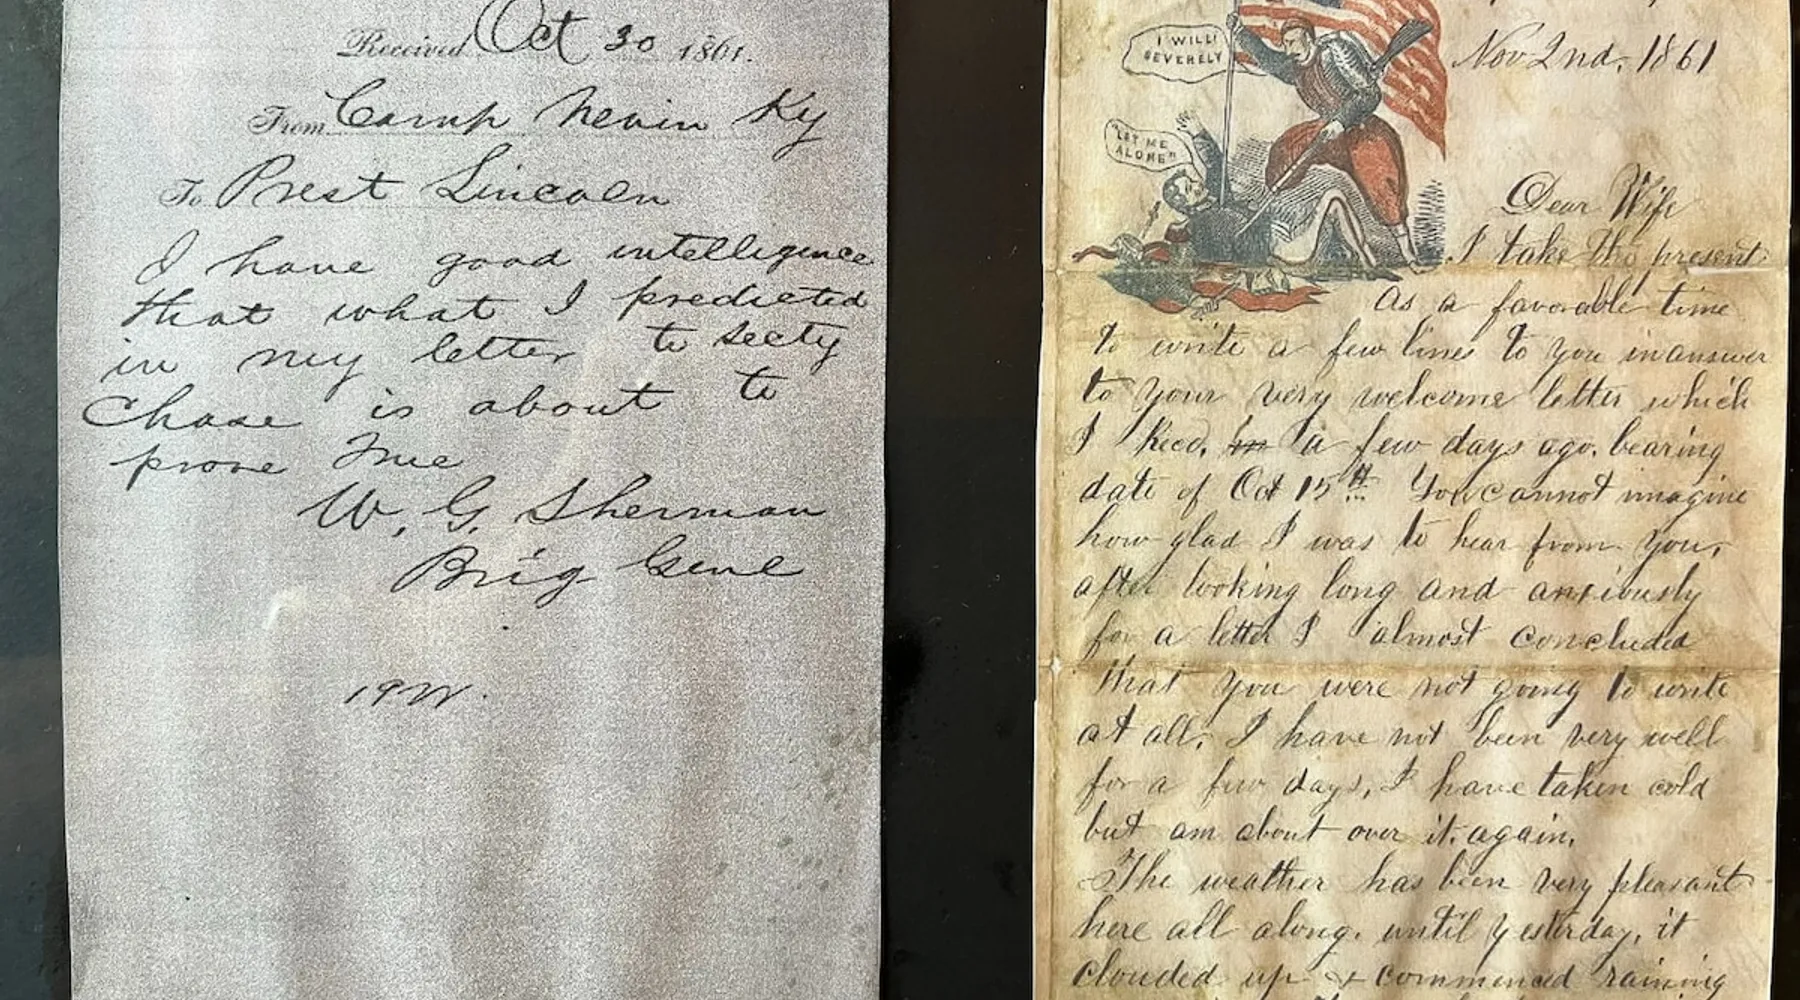 Received Oct 30 1861.
From Camp Nevin Ky
To Prest Lincoln
I have good intelligence
that what I predicted
in my letter to Secty
Chase is about to
prove True
W. G. Sherman
Brig Genl
19W.
I WILL!
SEVERELY
"LET ME
ALONE"
Nov 2nd. 1861
Dear Wife
I take the present
As a favorable time
to write a few lines to you in answer
to your very welcome letter which
I Recd. in a few days ago. bearing
date of Oct 15th You cannot imagine
how glad I was to hear from you,
after looking long and anxiously
for a letter I almost concluded
that you were not going to write
at all, I have not been very well
for a few days, I have taken cold
but am about over it again.
The weather has been very pleasant
here all along. until yesterday, it
clouded up & commenced raining